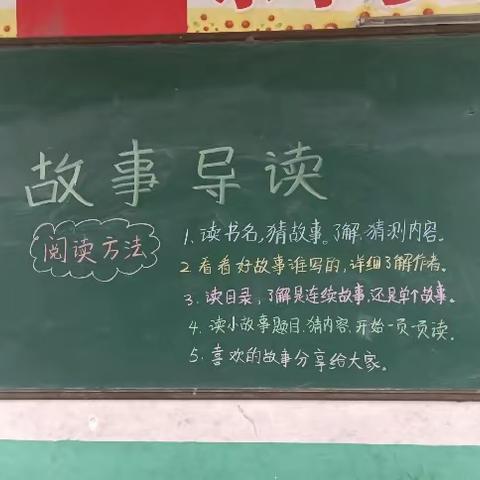 故事导读
阅读方法
1、读书名,猜故事。了解,猜测内容。
2、看看好故事谁写的,详细了解作者。
3、读目录,了解是连续故事,还是单个故事。
4、读小故事题目,猜内容,开始一页一页读。
5、喜欢的故事分享给大家。